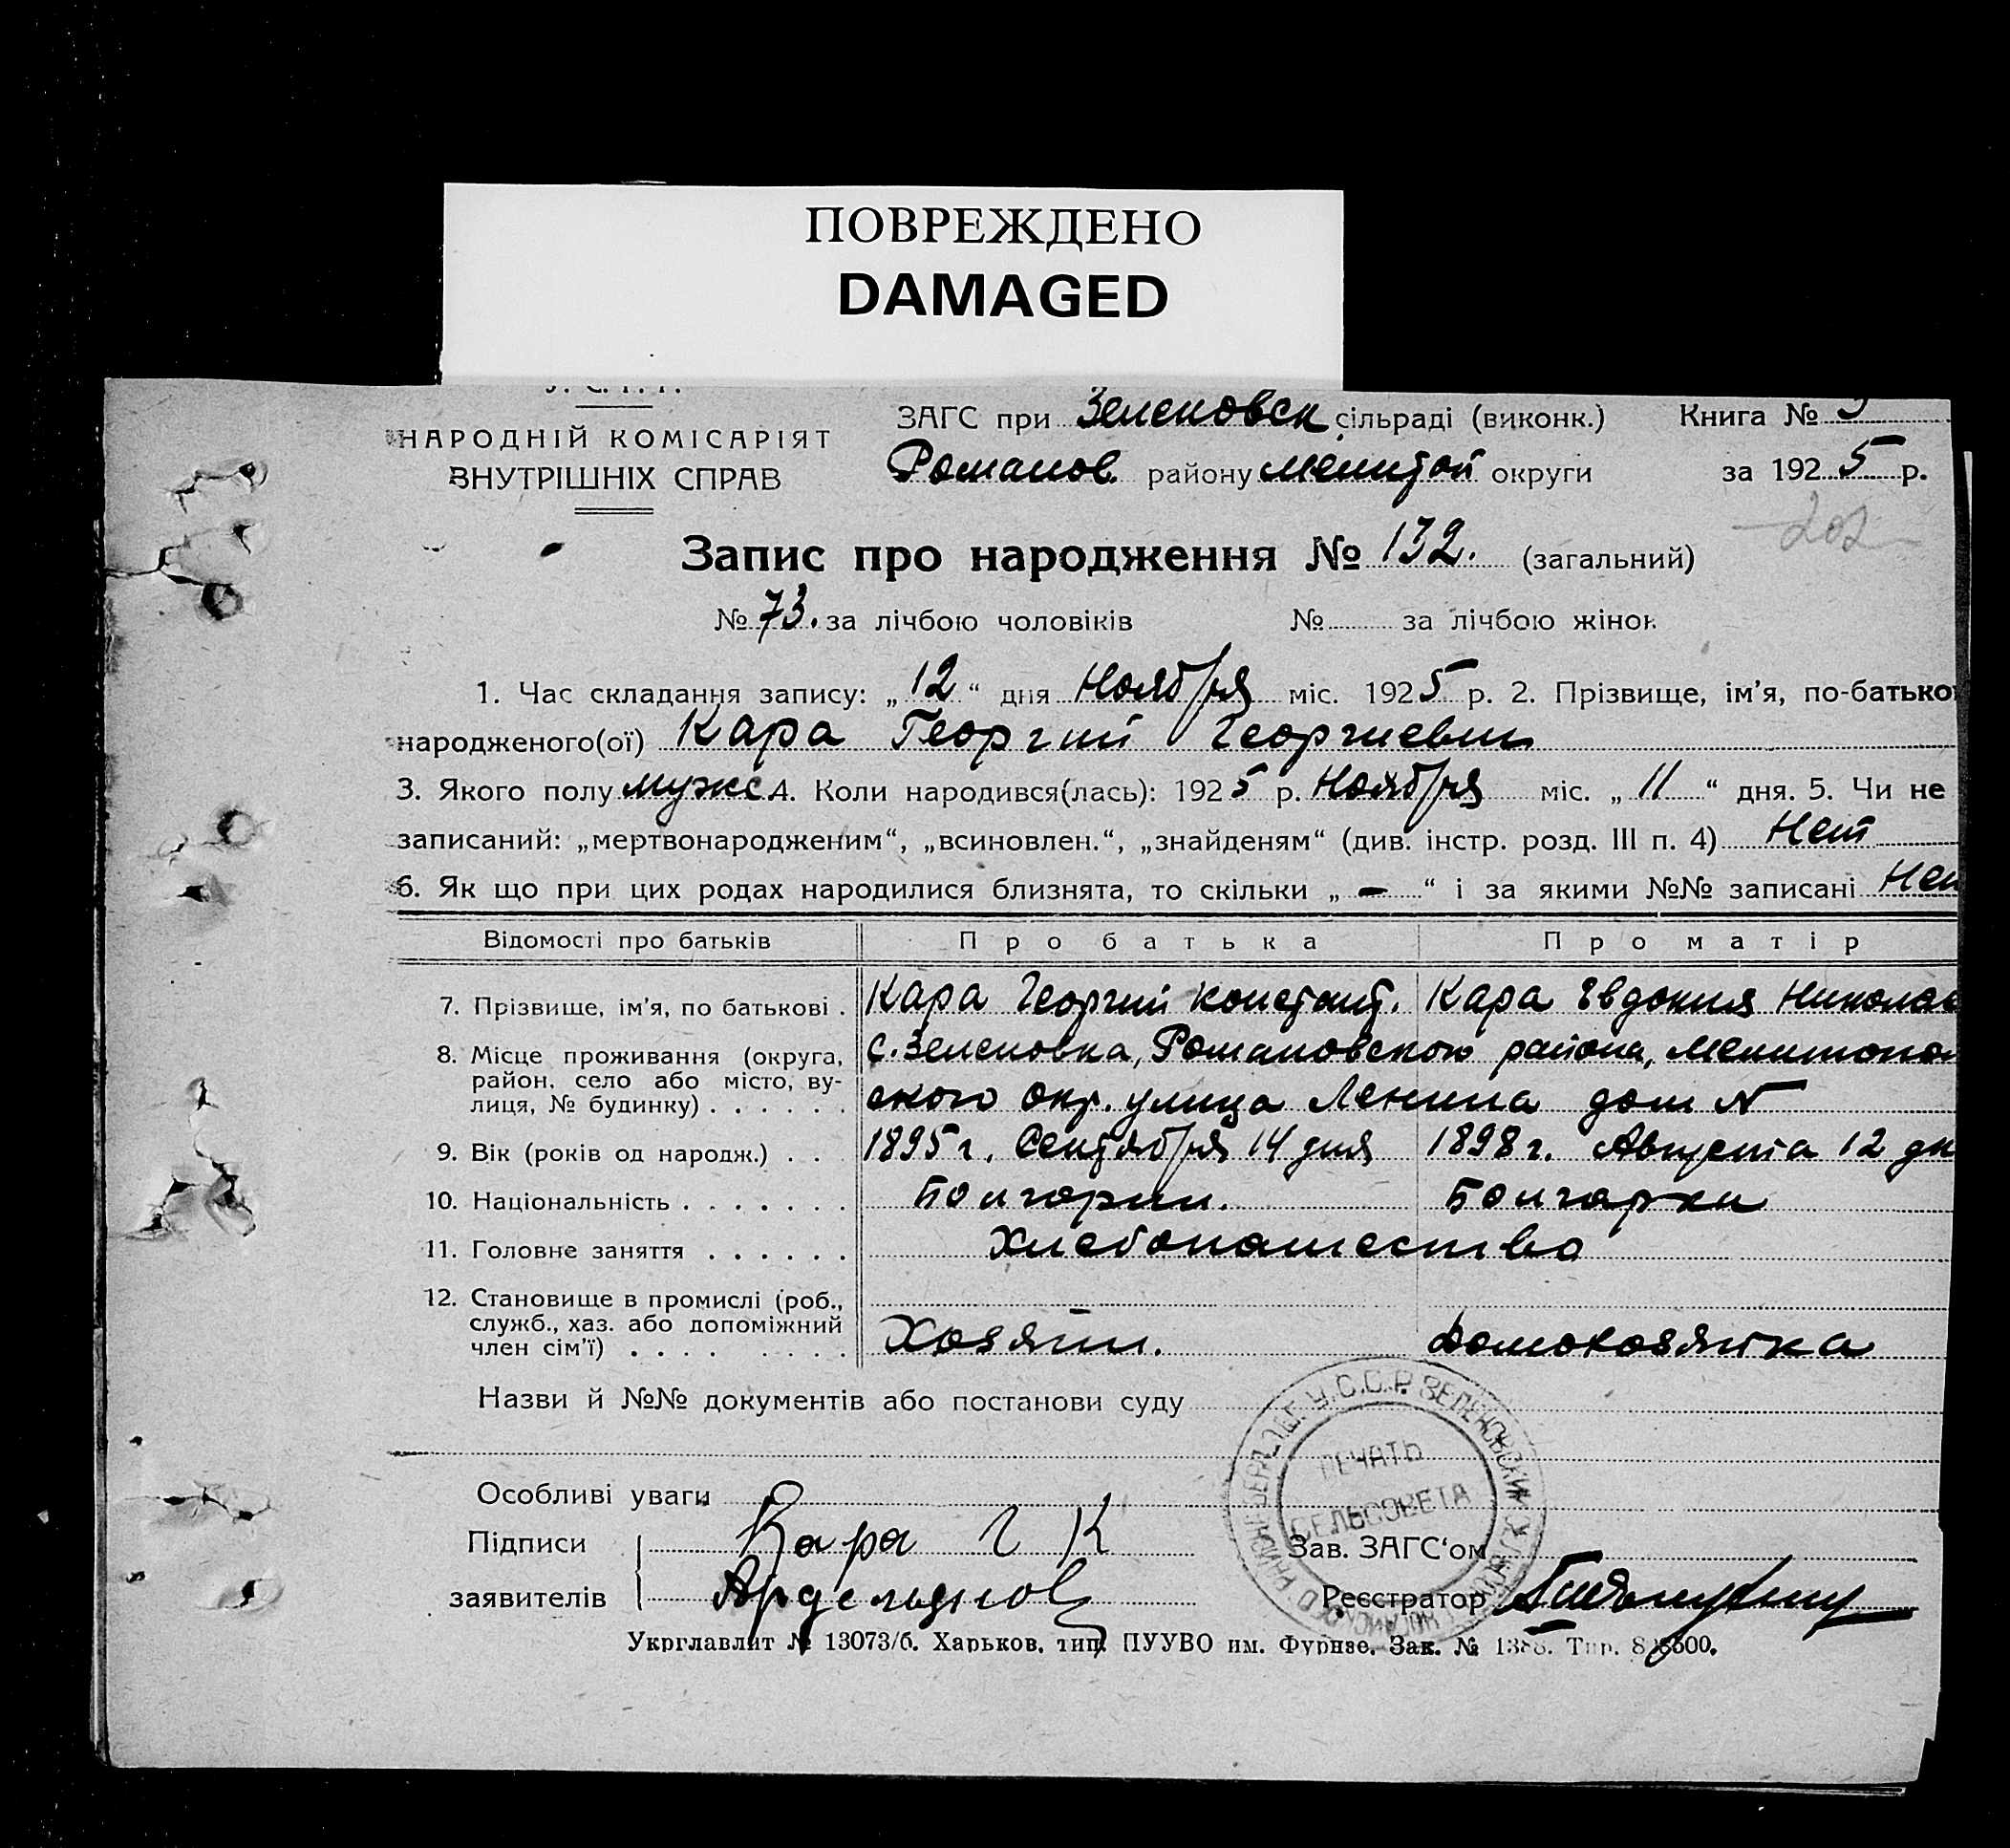 ПОВРЕЖДЕНО
DAMAGED
НАРОДНІЙ КОМІСАРІЯТ
ВНУТРІШНІХ СПРАВ
ЗАГС при Зеленовск сільраді (виконк.) Книга №
Романов. району Мелитоп округи за 1925 р.
202
Запис про народження № 132. (загальний)
№ 73. за лічбою чоловіків № за лічбою жінок
1. Час складання запису: „12“ дня Ноября міс. 1925 р. 2. Прізвище, ім’я, по-батько
народженого(ої) Кара Георгий Георгиевич
3. Якого полу мужс. 4. Коли народився(лась): 1925 р. Ноября міс. „11“ дня. 5. Чи не
записаний: „мертвонародженим“, „всиновлен.“, „знайденям“ (див. інстр. розд. III п. 4) Нет
6. Як що при цих родах народилися близнята, то скільки „-“ і за якими №№ записані Нет
Відомості про батьків Про батька Про матір
7. Прізвище, ім’я, по батькові . Кара Георгий Констант. Кара Евдокия Николае
8. Місце проживання (округа, район, село або місто, вулиця, № будинку) . . . . . . с. Зеленовка, Романовского района, Мелитополь
ского окр. улица Ленина дом N
9. Вік (років од народж.) . . 1895 г. Сентября 14 дня 1898 г. Августа 12 дн
10. Національність . . . . . . . Болгарин. Болгарки
11. Головне заняття . . . . . . Хлебопашество
12. Становище в промислі (роб., служб., хаз. або допоміжний член сім’ї) . . . . . . . . Хозяин. Домохозяйка
Назви й №№ документів або постанови суду
У.С.С.Р. ЗЕЛЕНОВСКИЙ
ПЕЧАТЬ
СЕЛЬСОВЕТА
Особливі уваги
Підписи Кара Г К Зав. ЗАГС‘ом
заявителів Реєстратор
Укрглавліт № 13073/б. Харьков, тип. ПУУВО им. Фрунзе. Зак. №